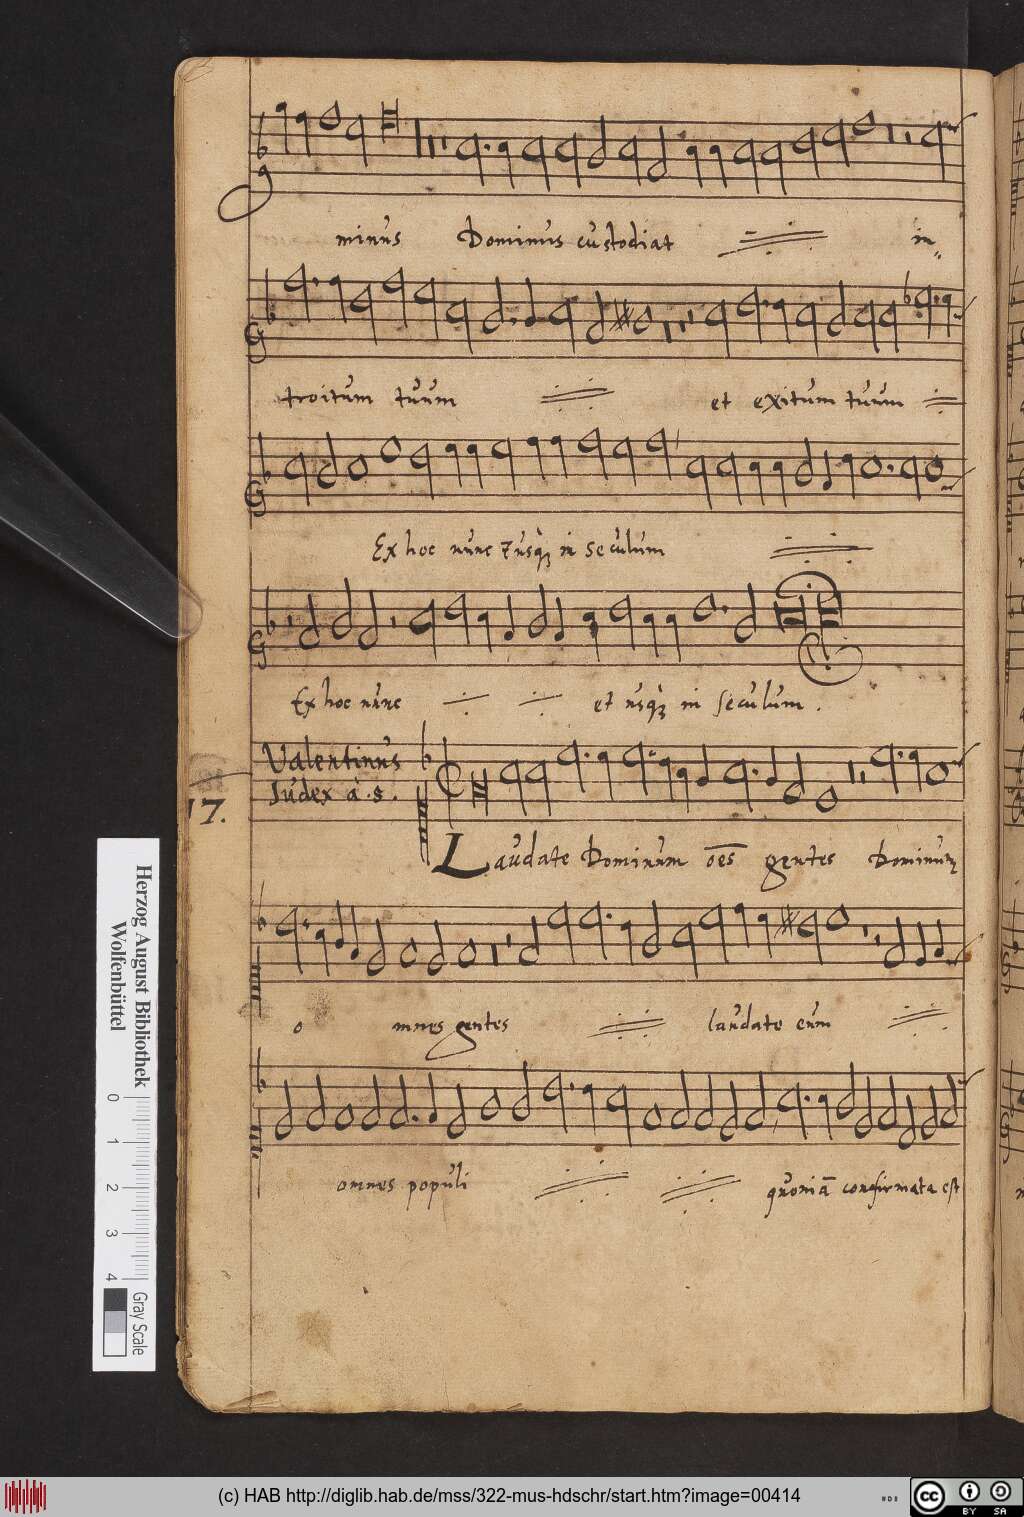 minus Dominus custodiat in-
troitum tuum et exitum tuum
Ex hoc nunc usq; in seculum
Ex hoc nunc et usq; in seculum.
Valentinus
Iudex à .5.
17.
Laudate Dominum oēs gentes Dominum
omnes gentes laudate eum
omnes populi quoniā confirmata est
Herzog August Bibliothek
Wolfenbüttel
0 1 2 3 4 Gray Scale
(c) HAB http://diglib.hab.de/mss/322-mus-hdschr/start.htm?image=00414
cc BY SA